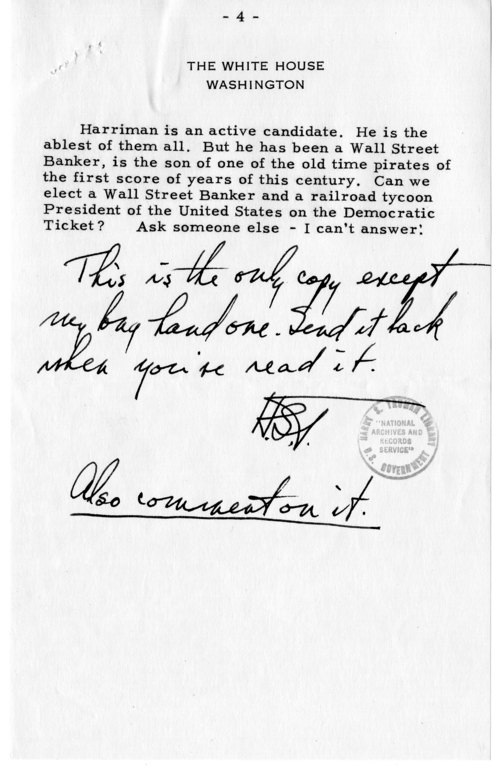 - 4 -
THE WHITE HOUSE
WASHINGTON
Harriman is an active candidate. He is the
ablest of them all. But he has been a Wall Street
Banker, is the son of one of the old time pirates of
the first score of years of this century. Can we
elect a Wall Street Banker and a railroad tycoon
President of the United States on the Democratic
Ticket? Ask someone else - I can't answer!
This is the only copy except
my long hand one. Send it back
when you've read it.
H.S.T.
HARRY S. TRUMAN LIBRARY
"NATIONAL
ARCHIVES AND
RECORDS
SERVICE"
U.S. GOVERNMENT
Also comment on it.